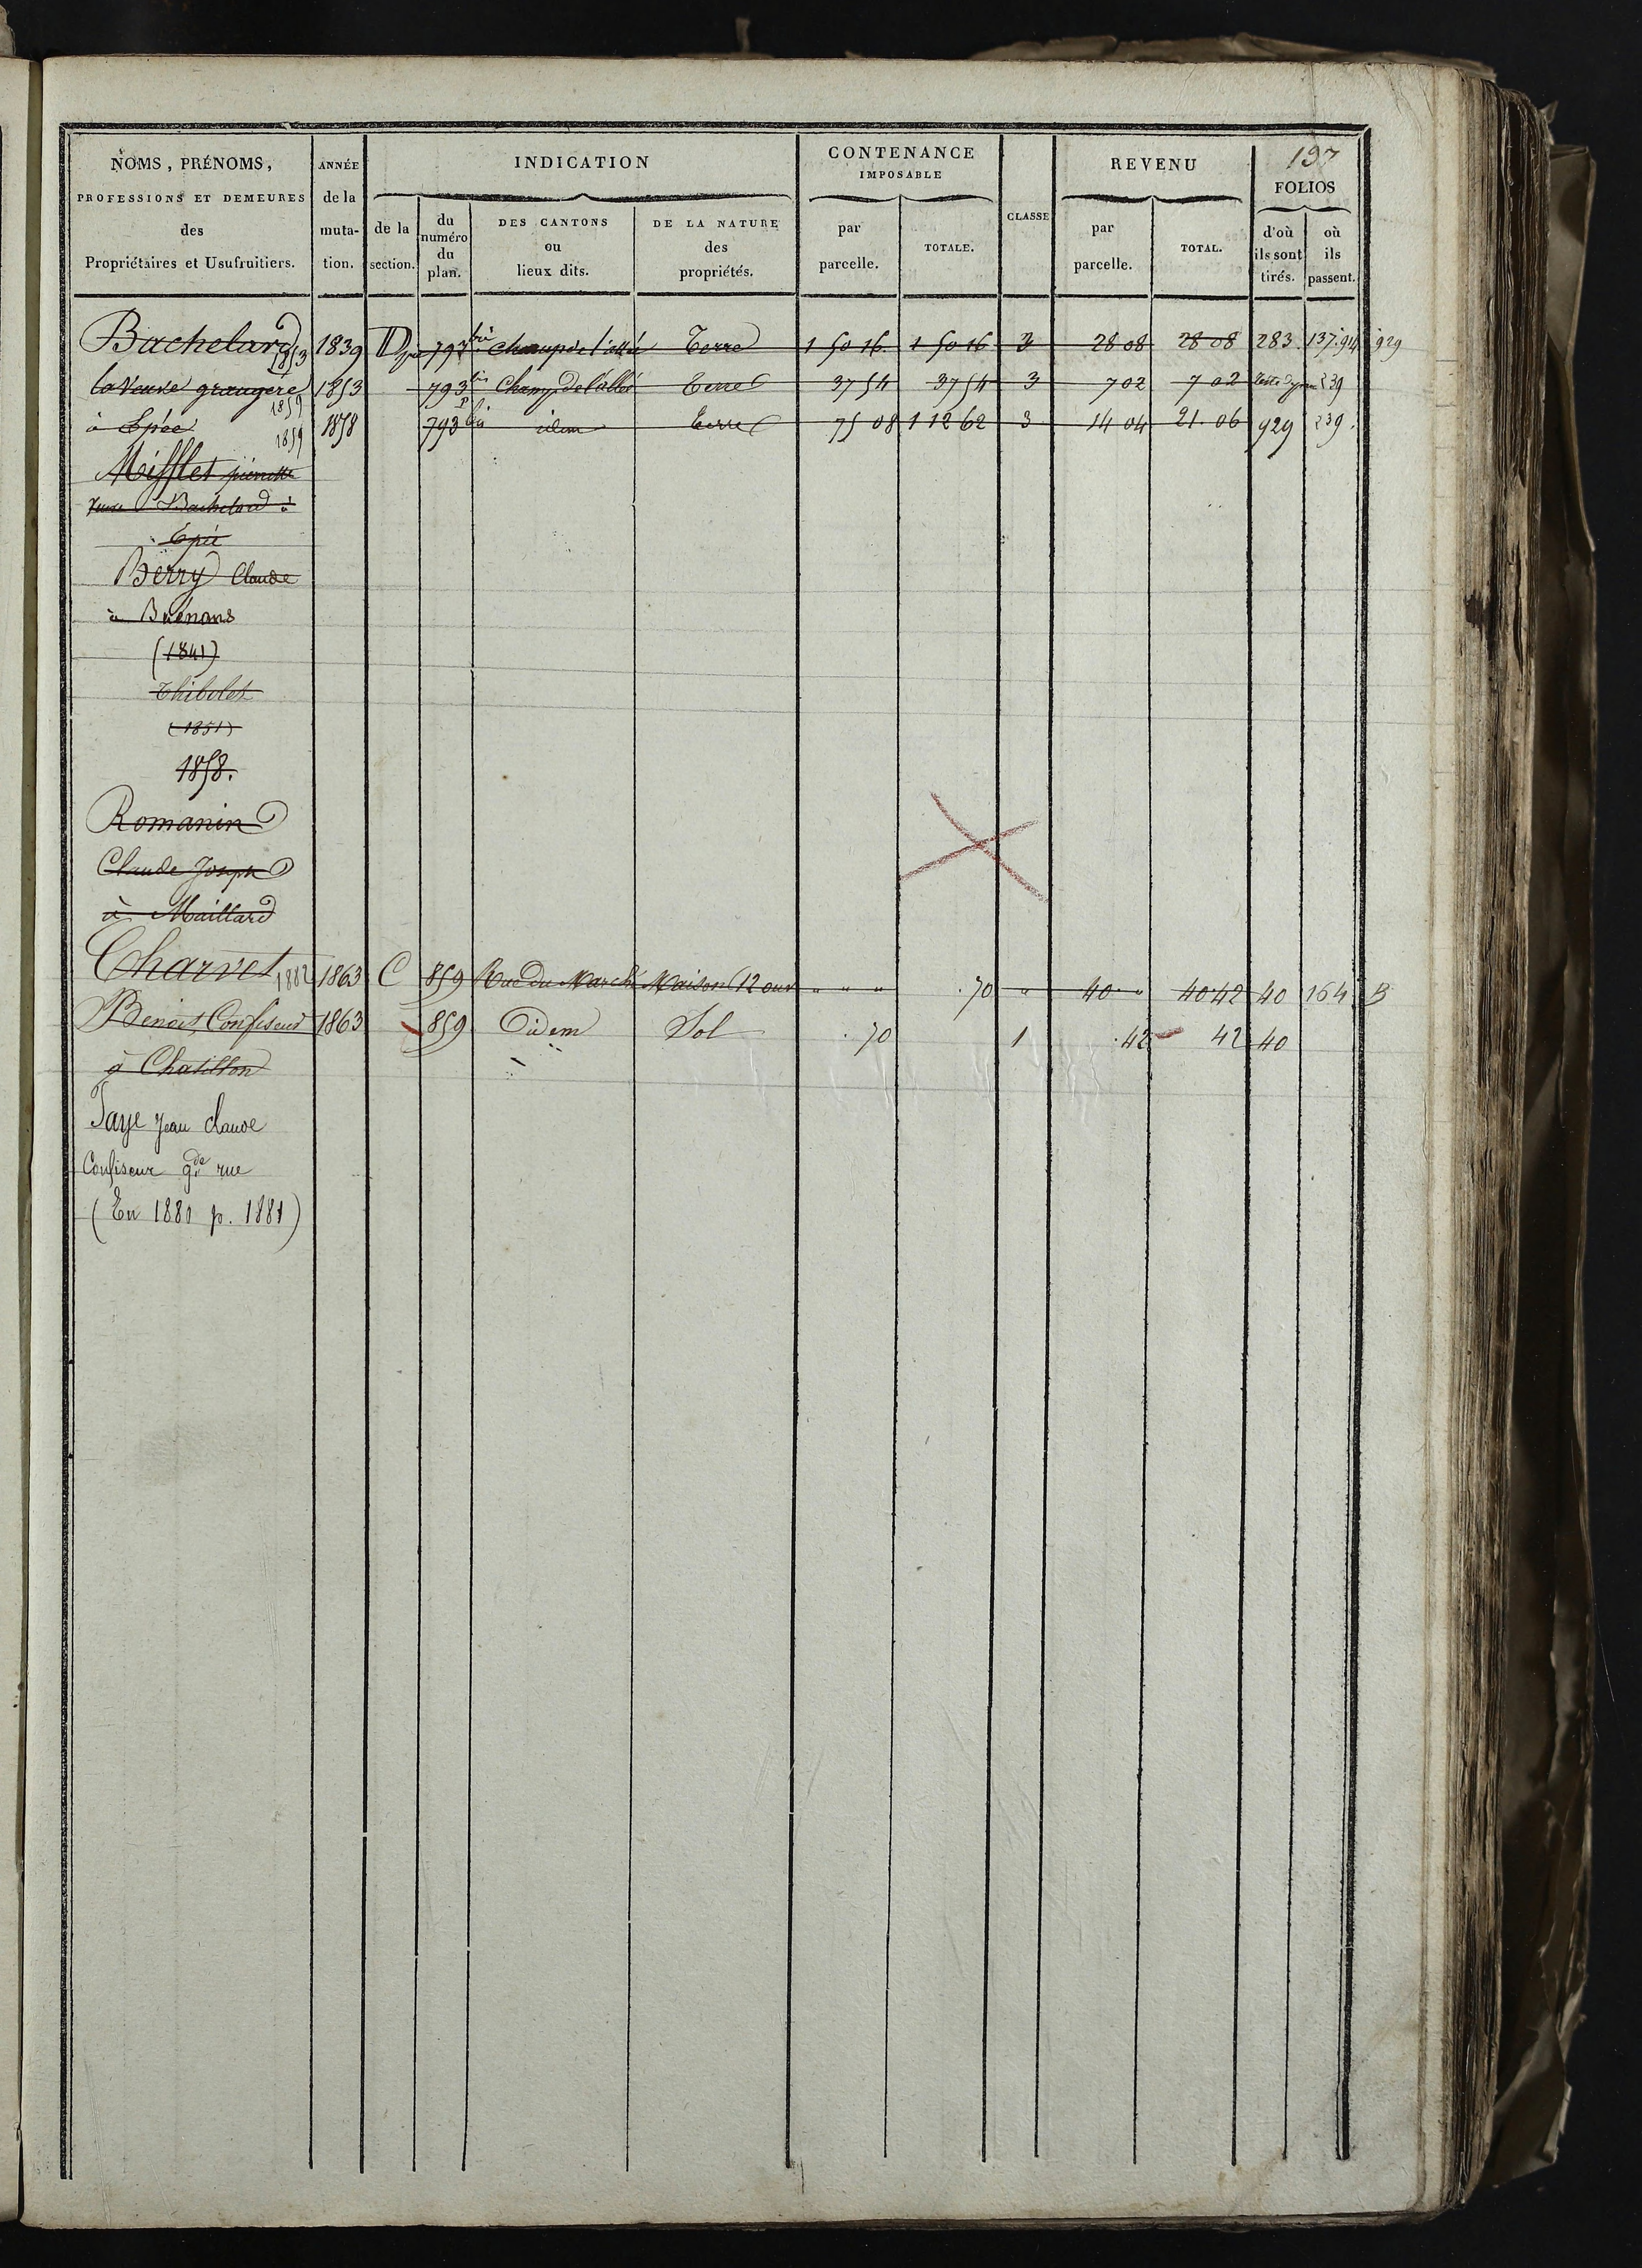 197
NOMS, PRÉNOMS, PROFESSIONS ET DEMEURES des Propriétaires et Usufruitiers.
ANNÉE de la muta-tion.
INDICATION
de la section.
du numéro du plan.
DES CANTONS ou lieux dits.
DE LA NATURE des propriétés.
CONTENANCE IMPOSABLE
par parcelle.
TOTALE.
CLASSE
REVENU
par parcelle.
TOTAL.
FOLIOS
d'où ils sont tirés.
où ils passent.
Bachelard 1853 1839 D 793 bis Champ de l'allée Terre 1 50 16 1 50 16 3 28 08 28 08 283 137. 914 929
la Veuve grangére 1853 793 bis Champ de l'allée Terre 37 54 37 54 3 7 02 7 02 239
1859
à Epée 1858 793 bis idem terre 75 08 1 12 62 3 14 04 21.06 929 239.
1859
Mifflet pierrette
Veuve Bachelard à
Epée
Berry Claude
à Buénans
(1841)
Thibolet
(1851)
1858.
Romanin
Claude Joseph
à Maillard
Charvet 1882 1863 C 859 Rue du Marché Maison (12 ouv " " " . 70 " 40 " 40.42 40 164 B
Benoit Confiseur 1863 859 idem Sol . 70 1 . 42 42 40
à Chatillon
Taye Jean claude
Confiseur gde rue
(En 1880 p. 1881)